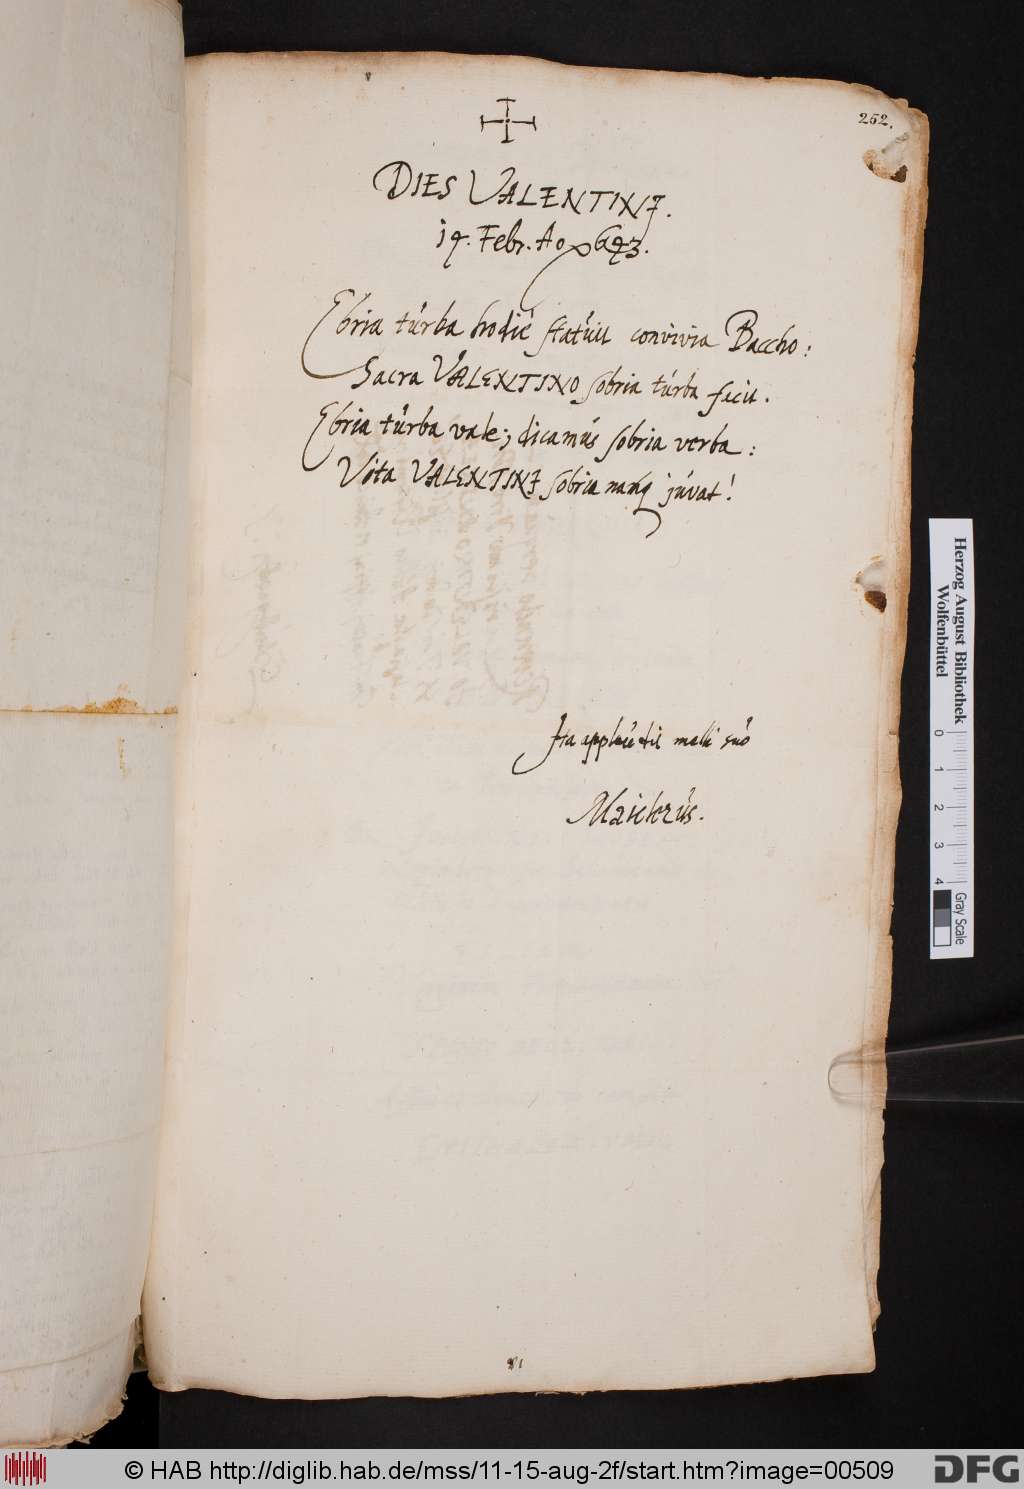 252.
DIES VALENTINJ.
14. Febr. Ao 1643.
Ebria turba hodiè statuit convivia Baccho:
Sacra VALENTINO sobria turba facit.
Ebria turba vale; dicamus sobria verba:
Vita VALENTINJ sobria namq juvat!
Ita applaudit suo
Herzog August Bibliothek
Wolfenbüttel
0 1 2 3 4
Gray Scale
© HAB http://diglib.hab.de/mss/11-15-aug-2f/start.htm?image=00509
DFG